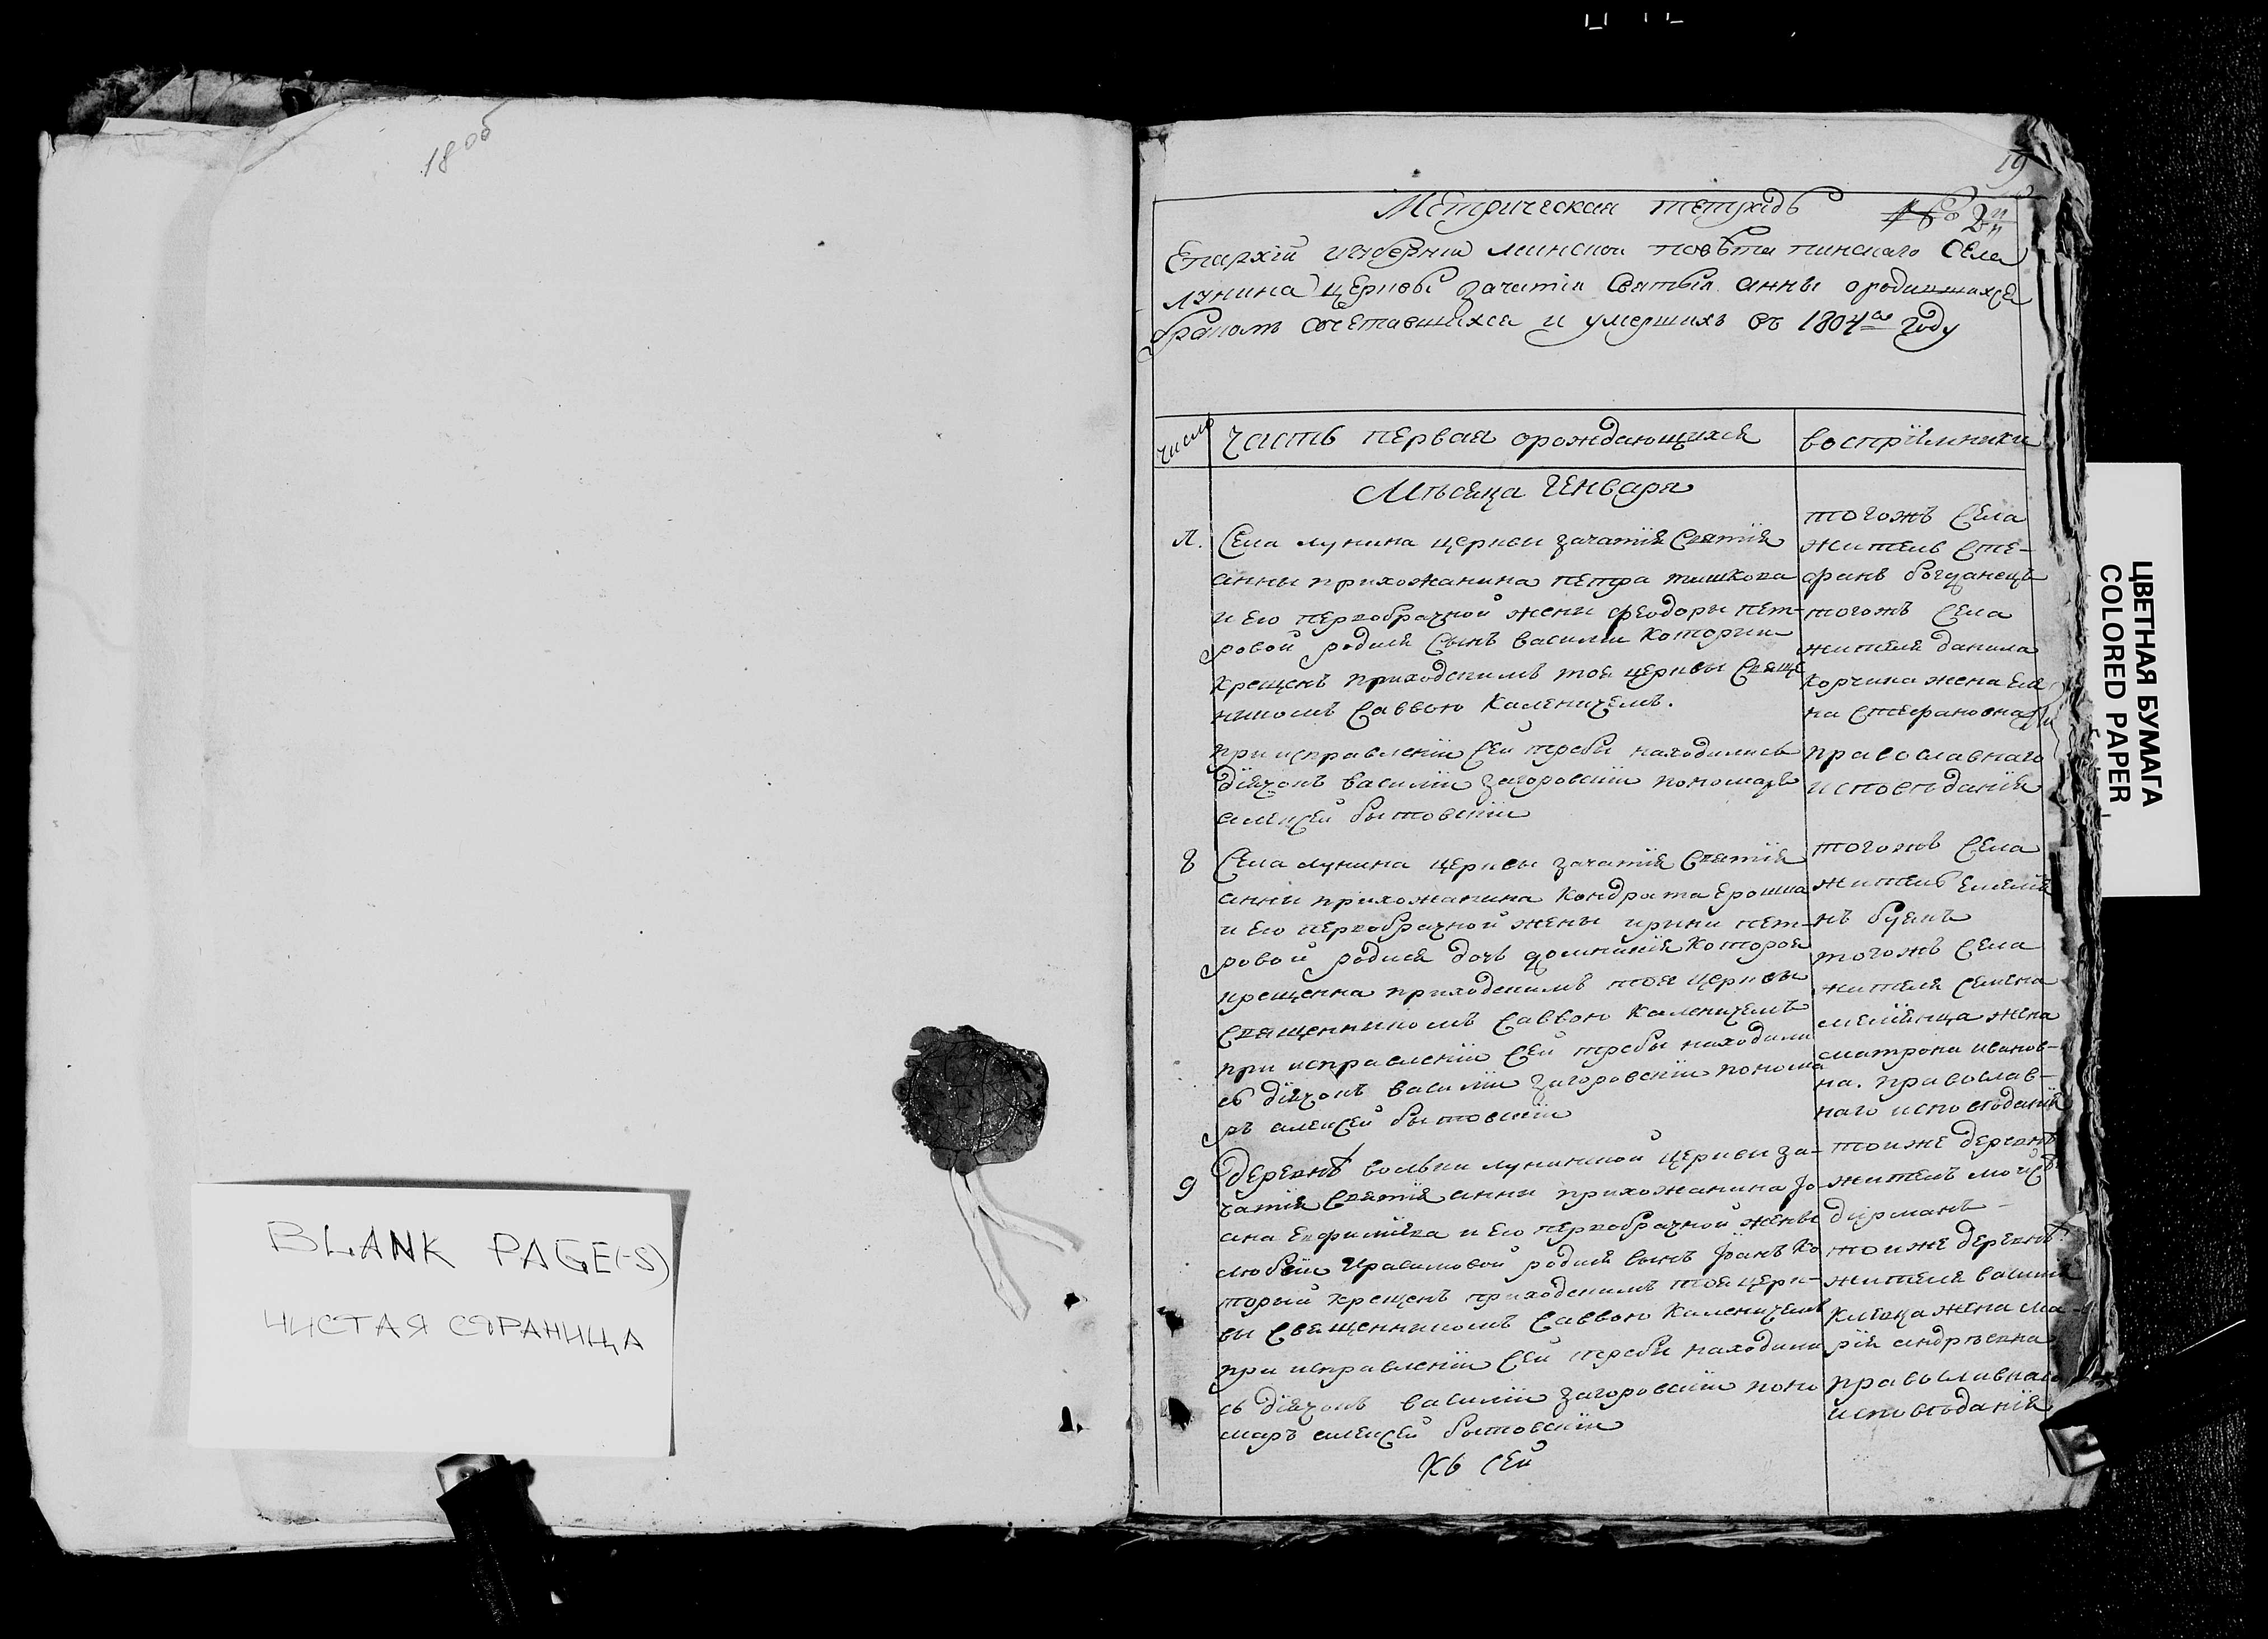 1806
BLANK PAGE(-S)
ЧИСТАЯ СТРАНИЦА
19
Метрическая тетрадь
Епархіи игуберніи минской повѣта пинскаго Села
лунина церкви зачатія Святыя анны ородившихся
бракомъ сочетавшихся и умершихъ въ 1804го году
число
Часть первая орождающихся
воспріемники
Мѣсяца Генваря
Села лунина церкви зачатія Святія
анны прихожанина петра тишкова
и его первобрачной жени феодоры пет-
ровой родися Сынъ василии которіи
крещенъ приходскимъ тоя церквы Свяще
никомъ Саввою Каменичемъ.
при исправленіи Сей требы находились
діячокъ василіи загоровскіи пономарь
алексей бытовскіи
тогожъ Села
житель Сте-
фанъ богданецъ
тогожъ Села
жителя данила
корчика жена Еле
на Стефановна
православнаго
исповѣданія
8
Села лунина церквы зачатія Святія
анны прихожанина кондрата Ерошка
и его первобрачной жены ирини пет-
ровой родися дочъ домникія которая
крещенна приходскимъ тоя церквы
Священникомъ Саввою Каменичемъ
при исправленіи Сей требы находили
сь діячокъ василіи загоровскіи понома
ръ алексей бытовскіи
тогожъ Села
житель Емелія
нъ буякъ
тогожъ Села
жителя Семена
жена
матрона иванов-
на. православ-
наго исповѣданія
9
деревнѣ вольки лунинкой церкви за-
чатія Святія анни прихожанина Іо-
ана и его первобрачной жены
любви Герасимовой родися сынъ Іоанъ ко
торый крещенъ приходскимъ тоя церк-
вы Священникомъ Саввою Каменичемъ
при исправленіи Сей требы находили
сь діячокъ василіи загоровскіи поно
маръ алексей бытовскіи
Къ Сей
тоиже деревнѣ
житель моисѣ
дирманъ
тоиже деревнѣ
жителя василія
жена ма-
рія андрѣевна
православнаго
исповѣданія
ЦВЕТНАЯ БУМАГА
COLORED PAPER